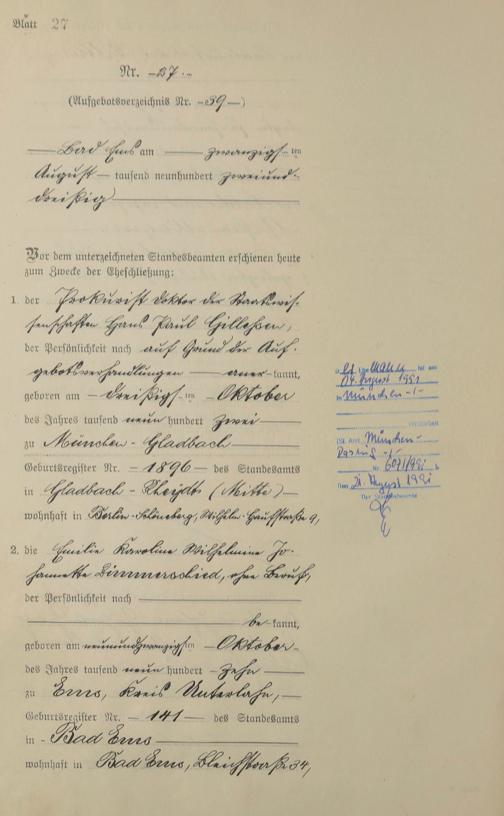 Blatt 27
Nr. 27.
(Aufgebotsverzeichnis Nr. 39)
Bad Ems am zwanzigsten
August tausend neunhundert zweiund-
dreißig
Vor dem unterzeichneten Standesbeamten erschienen heute
zum Zwecke der Eheschließung:
1. der Prokurist Doktor der Staatswis-
senschaften Hans Paul
der Persönlichkeit nach auf Grund der Auf-
gebotsverhandlungen anerkannt,
geboren am dreißigsten Oktober
des Jahres tausend neun hundert zwei
zu München-Gladbach
Geburtsregister Nr. 1896 des Standesamts
in Gladbach-Rheydt (Mitte)
wohnhaft in Berlin-Schöneberg, Wilhelm-Hauffstraße 9,
2. die Emilie Karoline Wilhelmine Jo-
hannette ohne Beruf,
der Persönlichkeit nach
bekannt,
geboren am neunundzwanzigsten Oktober
des Jahres tausend neun hundert zehn
zu Ems, Kreis Unterlahn,
Geburtsregister Nr. 141 des Standesamts
in Bad Ems
wohnhaft in Bad Ems, Bleichstraße 34,
14. August 1991
in München
St. Amt. München-
Pasing
Nr.
Den 21. August 1991
Der Standesbeamte